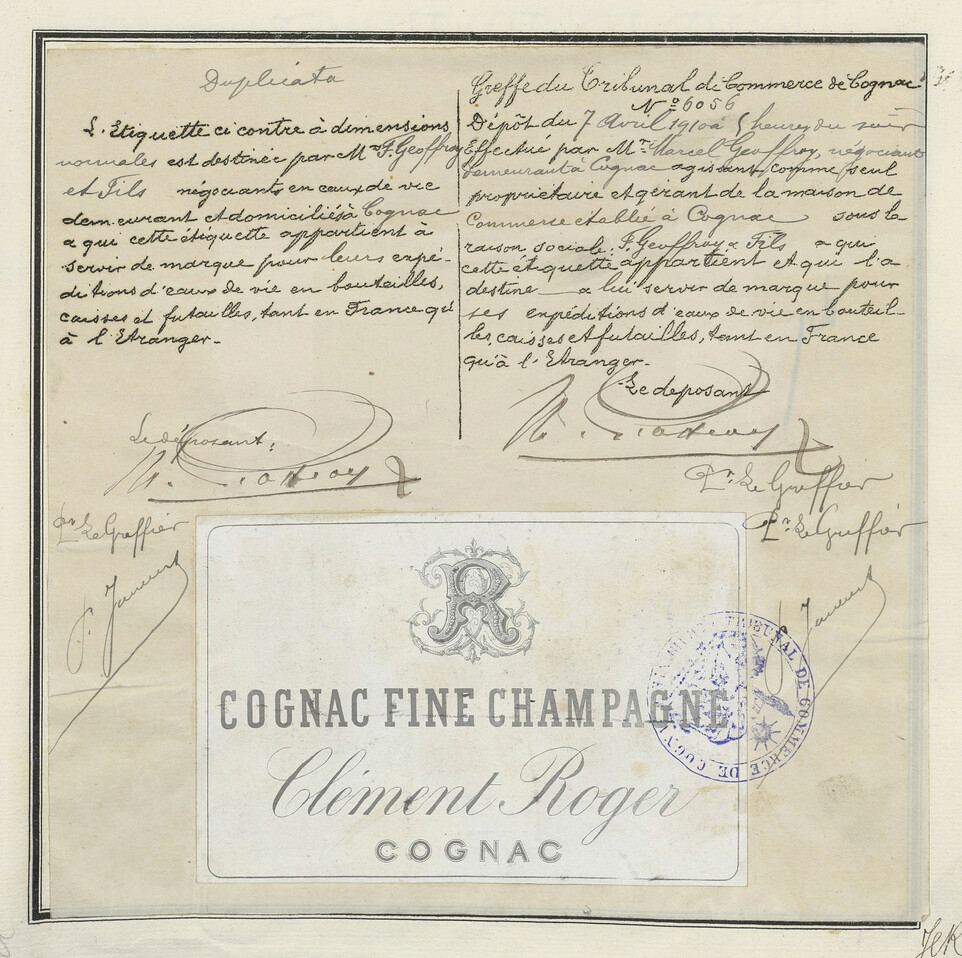 Duplicata
L'Etiquette ci contre à dimensions
normales est destinée par Mr F. Geoffroy
et Fils négociants en eaux de vie
demeurant et domiciliés à Cognac
a qui cette étiquette appartient à
servir de marque pour leurs expé-
ditions d'eaux de vie en bouteilles,
caisses et futailles, tant en France qu'
à l'Etranger.
Le déposant:
Pr Le Greffier
Greffe du Tribunal de Commerce de Cognac
No 6056
Dépôt du 7 Avril 1910 à 5 heures du soir
Effectué par Mr Marcel Geoffroy, négociant
demeurant à Cognac agissant comme seul
propriétaire et gérant de la maison de
Commerce établie à Cognac sous la
raison sociale: F. Geoffroy & Fils a qui
cette étiquette appartient et qui l'a
destine a lui servir de marque pour
ses expéditions d'eaux de vie en bouteil-
les, caisses et futailles, tant en France
qu'à l'Etranger.
Le deposant
Pr Le Greffier
Pr Le Greffier
COGNAC FINE CHAMPAGNE
Clément Roger
COGNAC
TRIBUNAL DE COMMERCE DE COGNAC